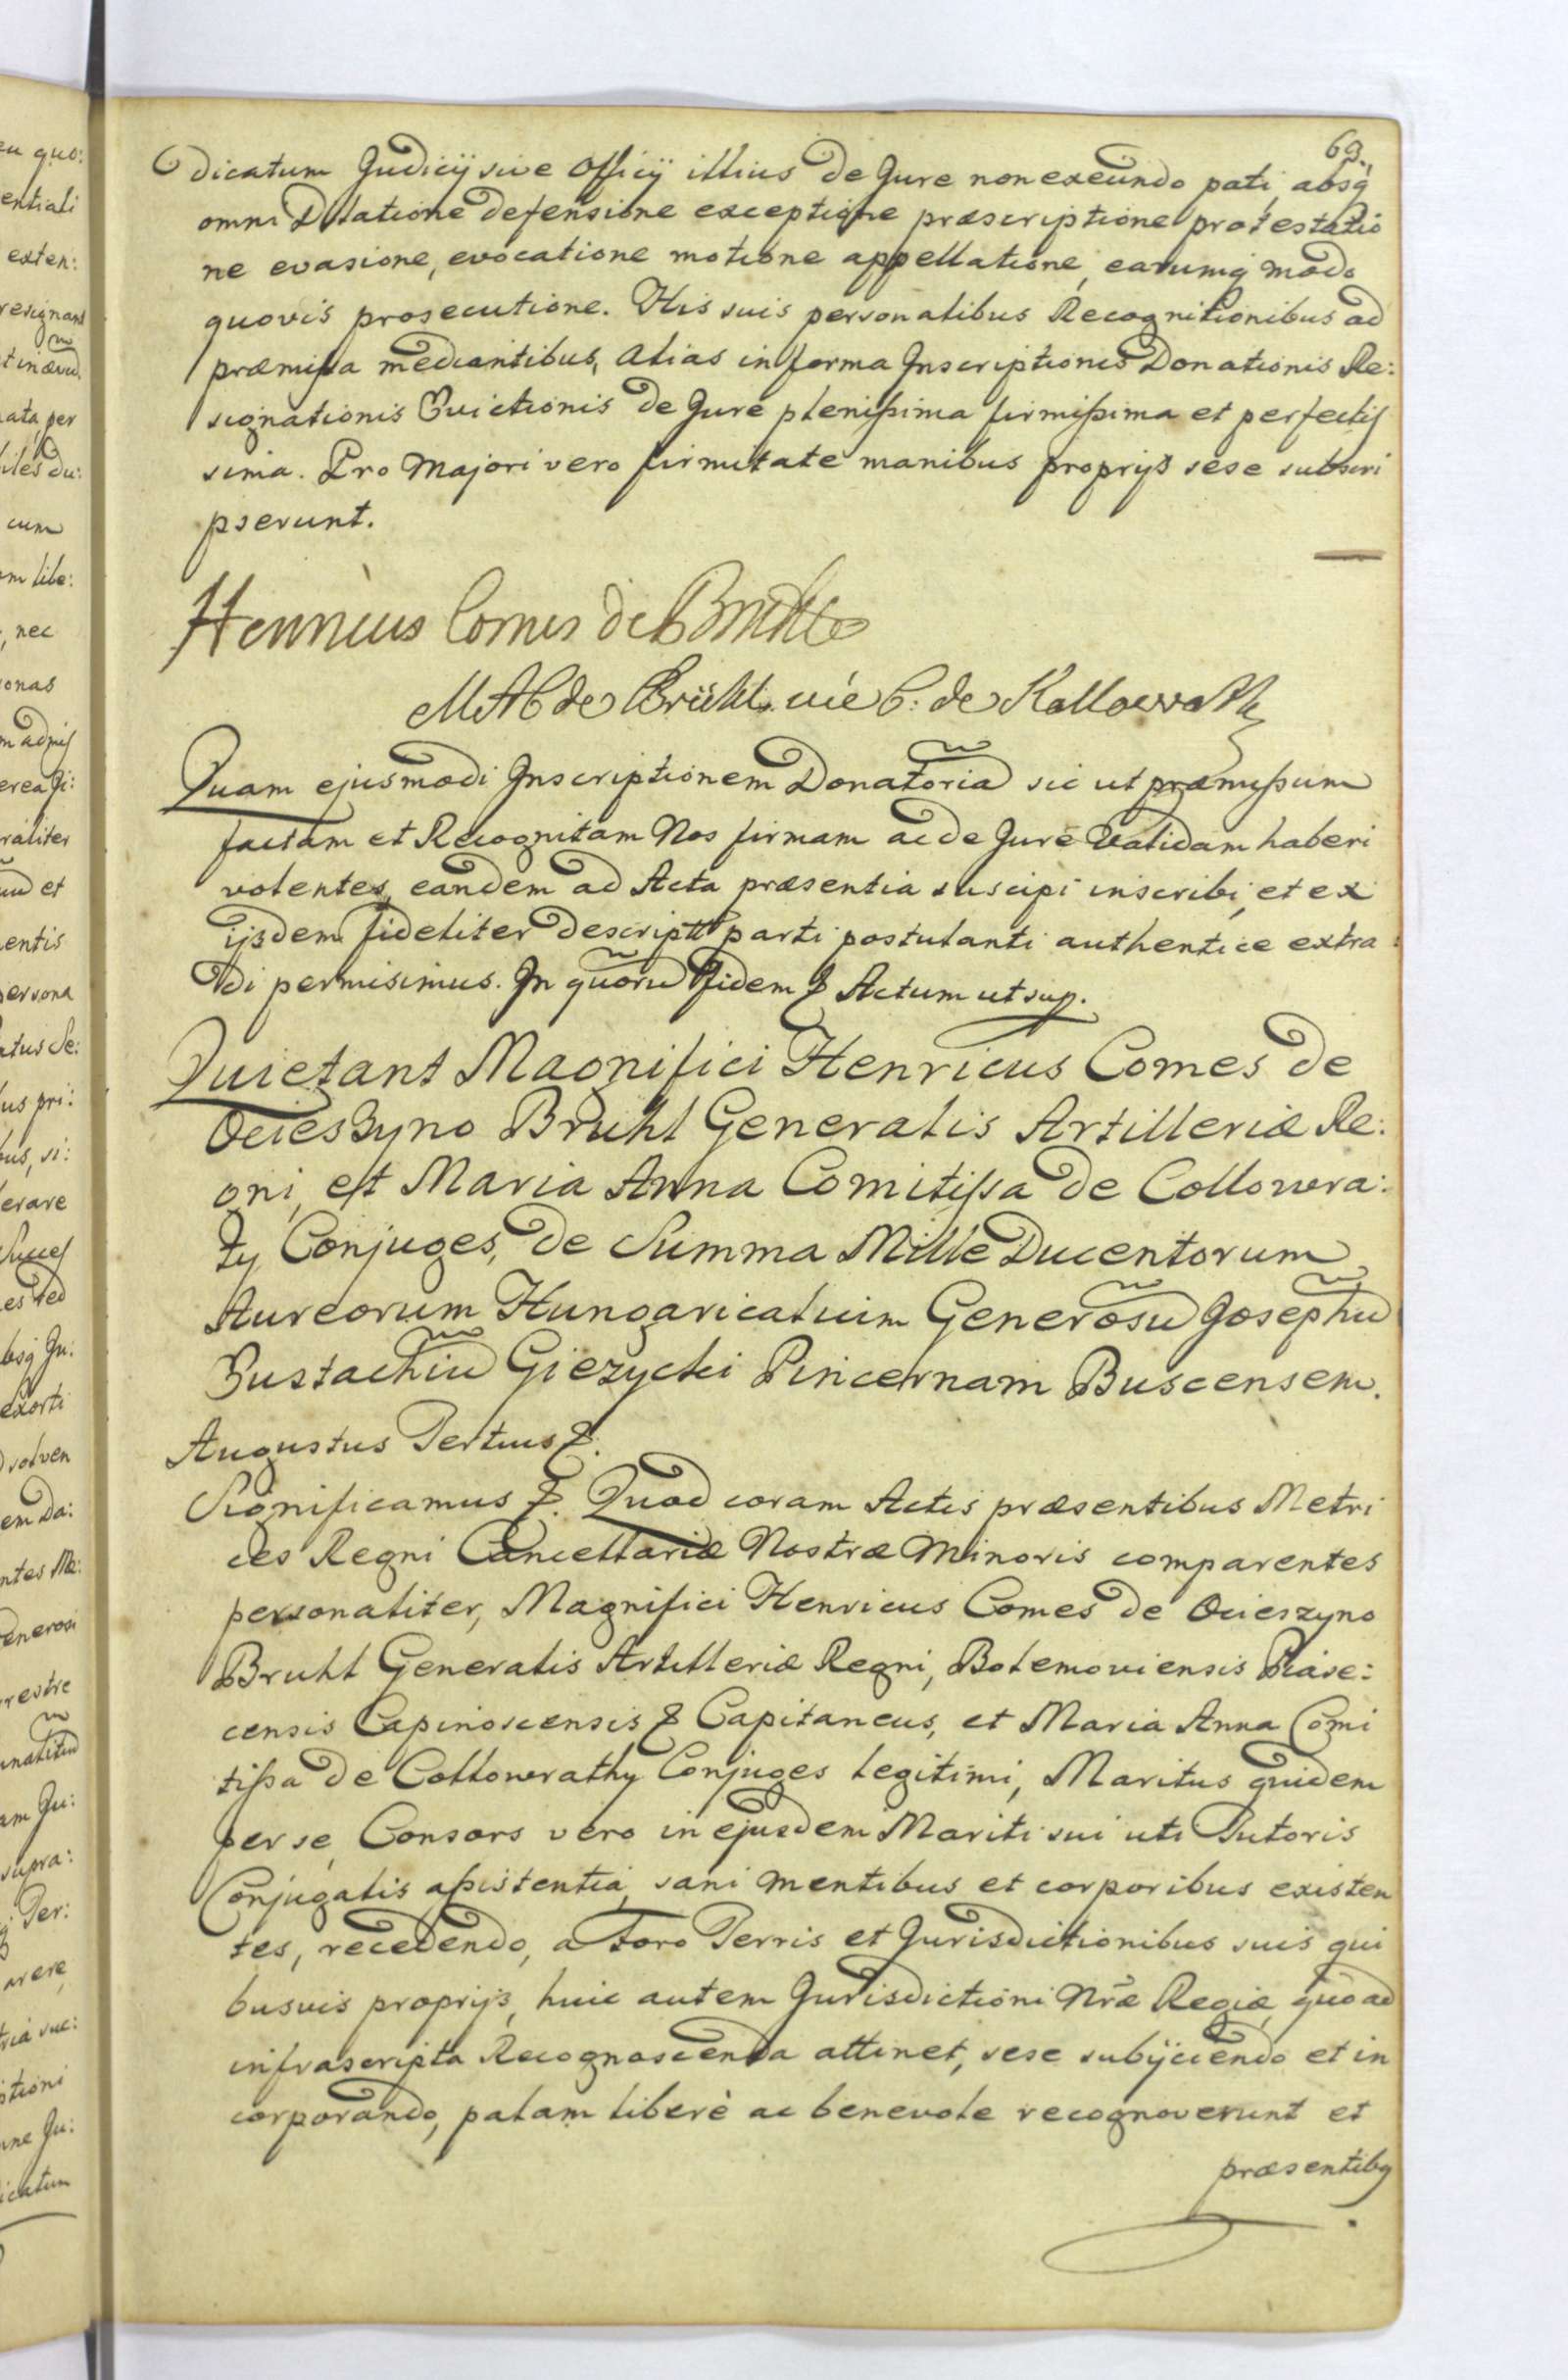 69.
dicatum Judicij sive Officij illius de Jure non exeundo pati, absq
omni Dilatione defensione exceptione præscriptione protestatio
ne evasione, evocatione motione appellatione, earumq modo
quovis prosecutione. His suis personalibus Recognitionibus ad
præmissa mediantibus, alias in forma Inscriptionis Donationis Re:
signationis Evictionis de Jure plenissima firmissima et perfectis
sima. Pro Majori vero firmitate manibus proprijs sese subscri
pserunt.
Henricus Comes de Bruhl
MAC de Brühl née C: de Kollowrath
Quam ejusmodi Inscriptionem Donatoriã sic ut præmissum
factam et Recognitam Nos firmam ac de Jure Validam haberi
volentes, eandem ad Acta præsentia suscipi inscribi, et ex
ijsdem fideliter descript parti postulanti authentice extra:
di permisimus. In quorũ Fidem & Actum ut sup.
Quietant Magnifici Henricus Comes de
Ocieszyno Bruhl Generalis Artilleriæ Re:
gni, et Maria Anna Comitissa de Collowra:
ty Conjuges, de Summa Mille Ducentorum
Aureorum Hungaricalium Generosũ Josephũ
Eustachiũ Giezycki Pincernam Buscensem.
Augustus Tertius &.
Significamus &. Quod coram Actis præsentibus Metri
ces Regni Cancellariæ Nostræ Minoris comparentes
personaliter, Magnifici Henricus Comes de Ocieszyno
Bruhl Generalis Artilleriæ Regni, Bolemoviensis Piase:
censis Capinoscensis & Capitaneus, et Maria Anna Comi
tissa de Collowrathy Conjuges legitimi, Maritus quidem
per se, Consors vero in ejusdem Mariti sui uti Tutoris
Conjugalis assistentia, sani mentibus et corporibus existen
tes, recedendo, a Foro Terris et Jurisdictionibus suis qui
busvis proprijs, huic autem Jurisdictioni Nræ Regiæ, quo ad
infrascripta Recognoscenda attinet, sese subijciendo et in
corporando, palam liberè ac benevole recognoverunt et
præsentibq